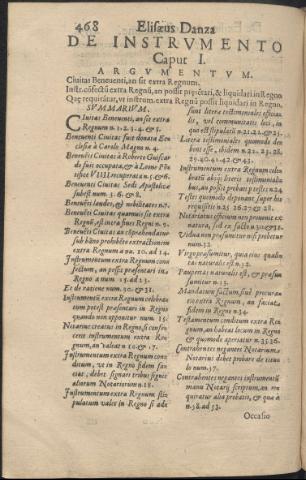 468 Elisæus Danza
DE INSTRVMENTO
Caput I.
ARGVMENTVM.
Ciuitas Beneuenti, an sit extra Regnum.
Instr. cōfectū extra Regnū, an possit pręsētari, & liquidari in Regno
Quę requirātur, vt instrum. extra Regnū possit liquidari in Regno.
SVMMARIVM.
Ciuitas Beneuenti, an sit extra
Regnum n. 1. 2. 3. 4. & 5.
Beneuēti Ciuitas fuit donata Ec-
clesiæ à Carolo Magno n. 4.
Beneuēti Ciuitas à Roberto Guiscar
do fuit occupata, & à Leone
VIIII recuperata n. 5 & 6.
Beneuēti Ciuitas Sedi Apostolicæ
subest num. 5. 6. & 8.
Beneuēti laudes, & nobilitates n. 7.
Beneuēti Ciuitas quamuis sit extra
Regnū, est intra fines Regni n. 9.
Beneuēti Ciuitas an cōprehendatur
sub bāno prohibēte extractionem
extra Regnum à nu. 10. ad 14.
Instrumentum extra Regnum con
fectum, an possit præsentari in
Regno à num. 15. ad 23.
Et de ratione num. 30. & 31.
Instrumentū extra Regnum celebrat
tum potest præsentari in Regno
quando non apponitur num. 15.
Notarius creatus in Regno, si confi-
ceret instrumentum extra Re-
gnum, an valeat n. 16 & 17.
Instrumentum extra Regnum con
dictum, vt in Regno fidem fa-
ciat, debet signari tribus signis
aliorum Notariorum n. 18.
Instrumentum extra Regnum sti-
pulatum valet in Regno si ad
sunt literæ testimoniales officia-
lis, vel communitatis loci, in
quo est stipulatū n. 21. 22. & 23.
Literæ testimoniales quomodo de-
bent esse, ibidem n. 21. 23. 28.
29. 40. 41. 42. & 43.
Instrumentum extra Regnum cele
bratū absq; literis testimoniali-
bus, an possit probari p testes n. 24
Testes quomodo deponant super his
requisitis n. 25 26. 27 & 28.
Notariatus officium non prouenit ex
natura, sed ex facto n. 30 & 38.
Vidua non præsumitur nisi probetur
num. 32.
Virgo præsumitur, quia eius quali-
tas naturalis est n. 32.
Paupertas naturalis est, & præsu-
mitur n. 33.
Mandatum factum, siue procuratu
extra Regnum, an faciat
fidem in Regno n. 34.
Testamentum conditum extra Re
gnum, an habeat locum in Regno
& quomodo aperiatur n. 35 36.
Contrahentes negantes Notarium,
Notarius debet probare de titu-
lo num. 37.
Contrahentes negantes instrumentū
manu Notarij scriptum, an re-
quiratur alia probatio, & quæ à
n. 38. ad 53.
Occasio